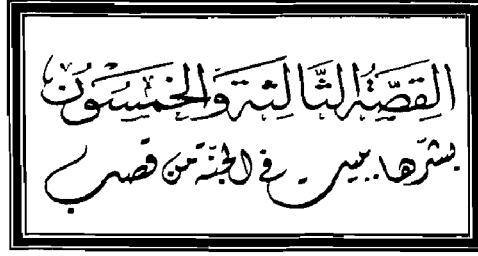 القِصَّةُ الثَّالِثَة وَالخَمسُون
بشّرها.. ببيت في الجنّة من قصب